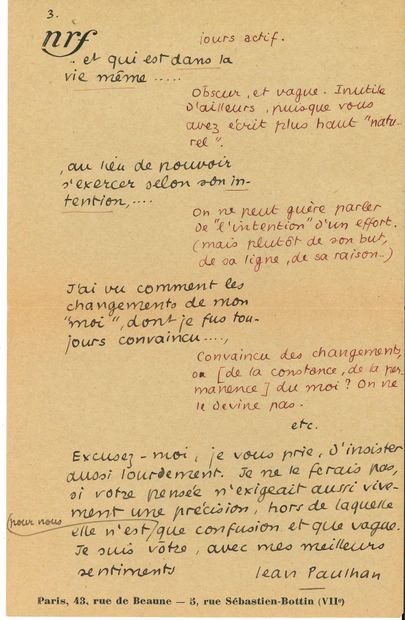 3.
nrf
jours actif.
.. et qui est dans la
vie même .....
Obscur, et vague. Inutile
d'ailleurs, puisque vous
avez écrit plus haut "natu-
rel".
, au lieu de pouvoir
s'exercer selon son in-
tention, ....
On ne peut guère parler
de "l'intention" d'un effort.
(mais plutôt de son but,
de sa ligne, de sa raison..)
J'ai vu comment les
changements de mon
"moi", dont je fus tou-
jours convaincu ....,
Convaincu des changements,
ou [de la constance, de la per
manence] du moi ? On ne
le devine pas.
etc.
Excusez-moi, je vous prie, d'insister
aussi lourdement. Je ne le ferais pas,
si votre pensée n'exigeait aussi vive-
ment une précision, hors de laquelle
pour nous
elle n'est que confusion et que vague.
Je suis vôtre, avec mes meilleurs
sentiments
Jean Paulhan
Paris, 43, rue de Beaune — 5, rue Sébastien-Bottin (VIIe)